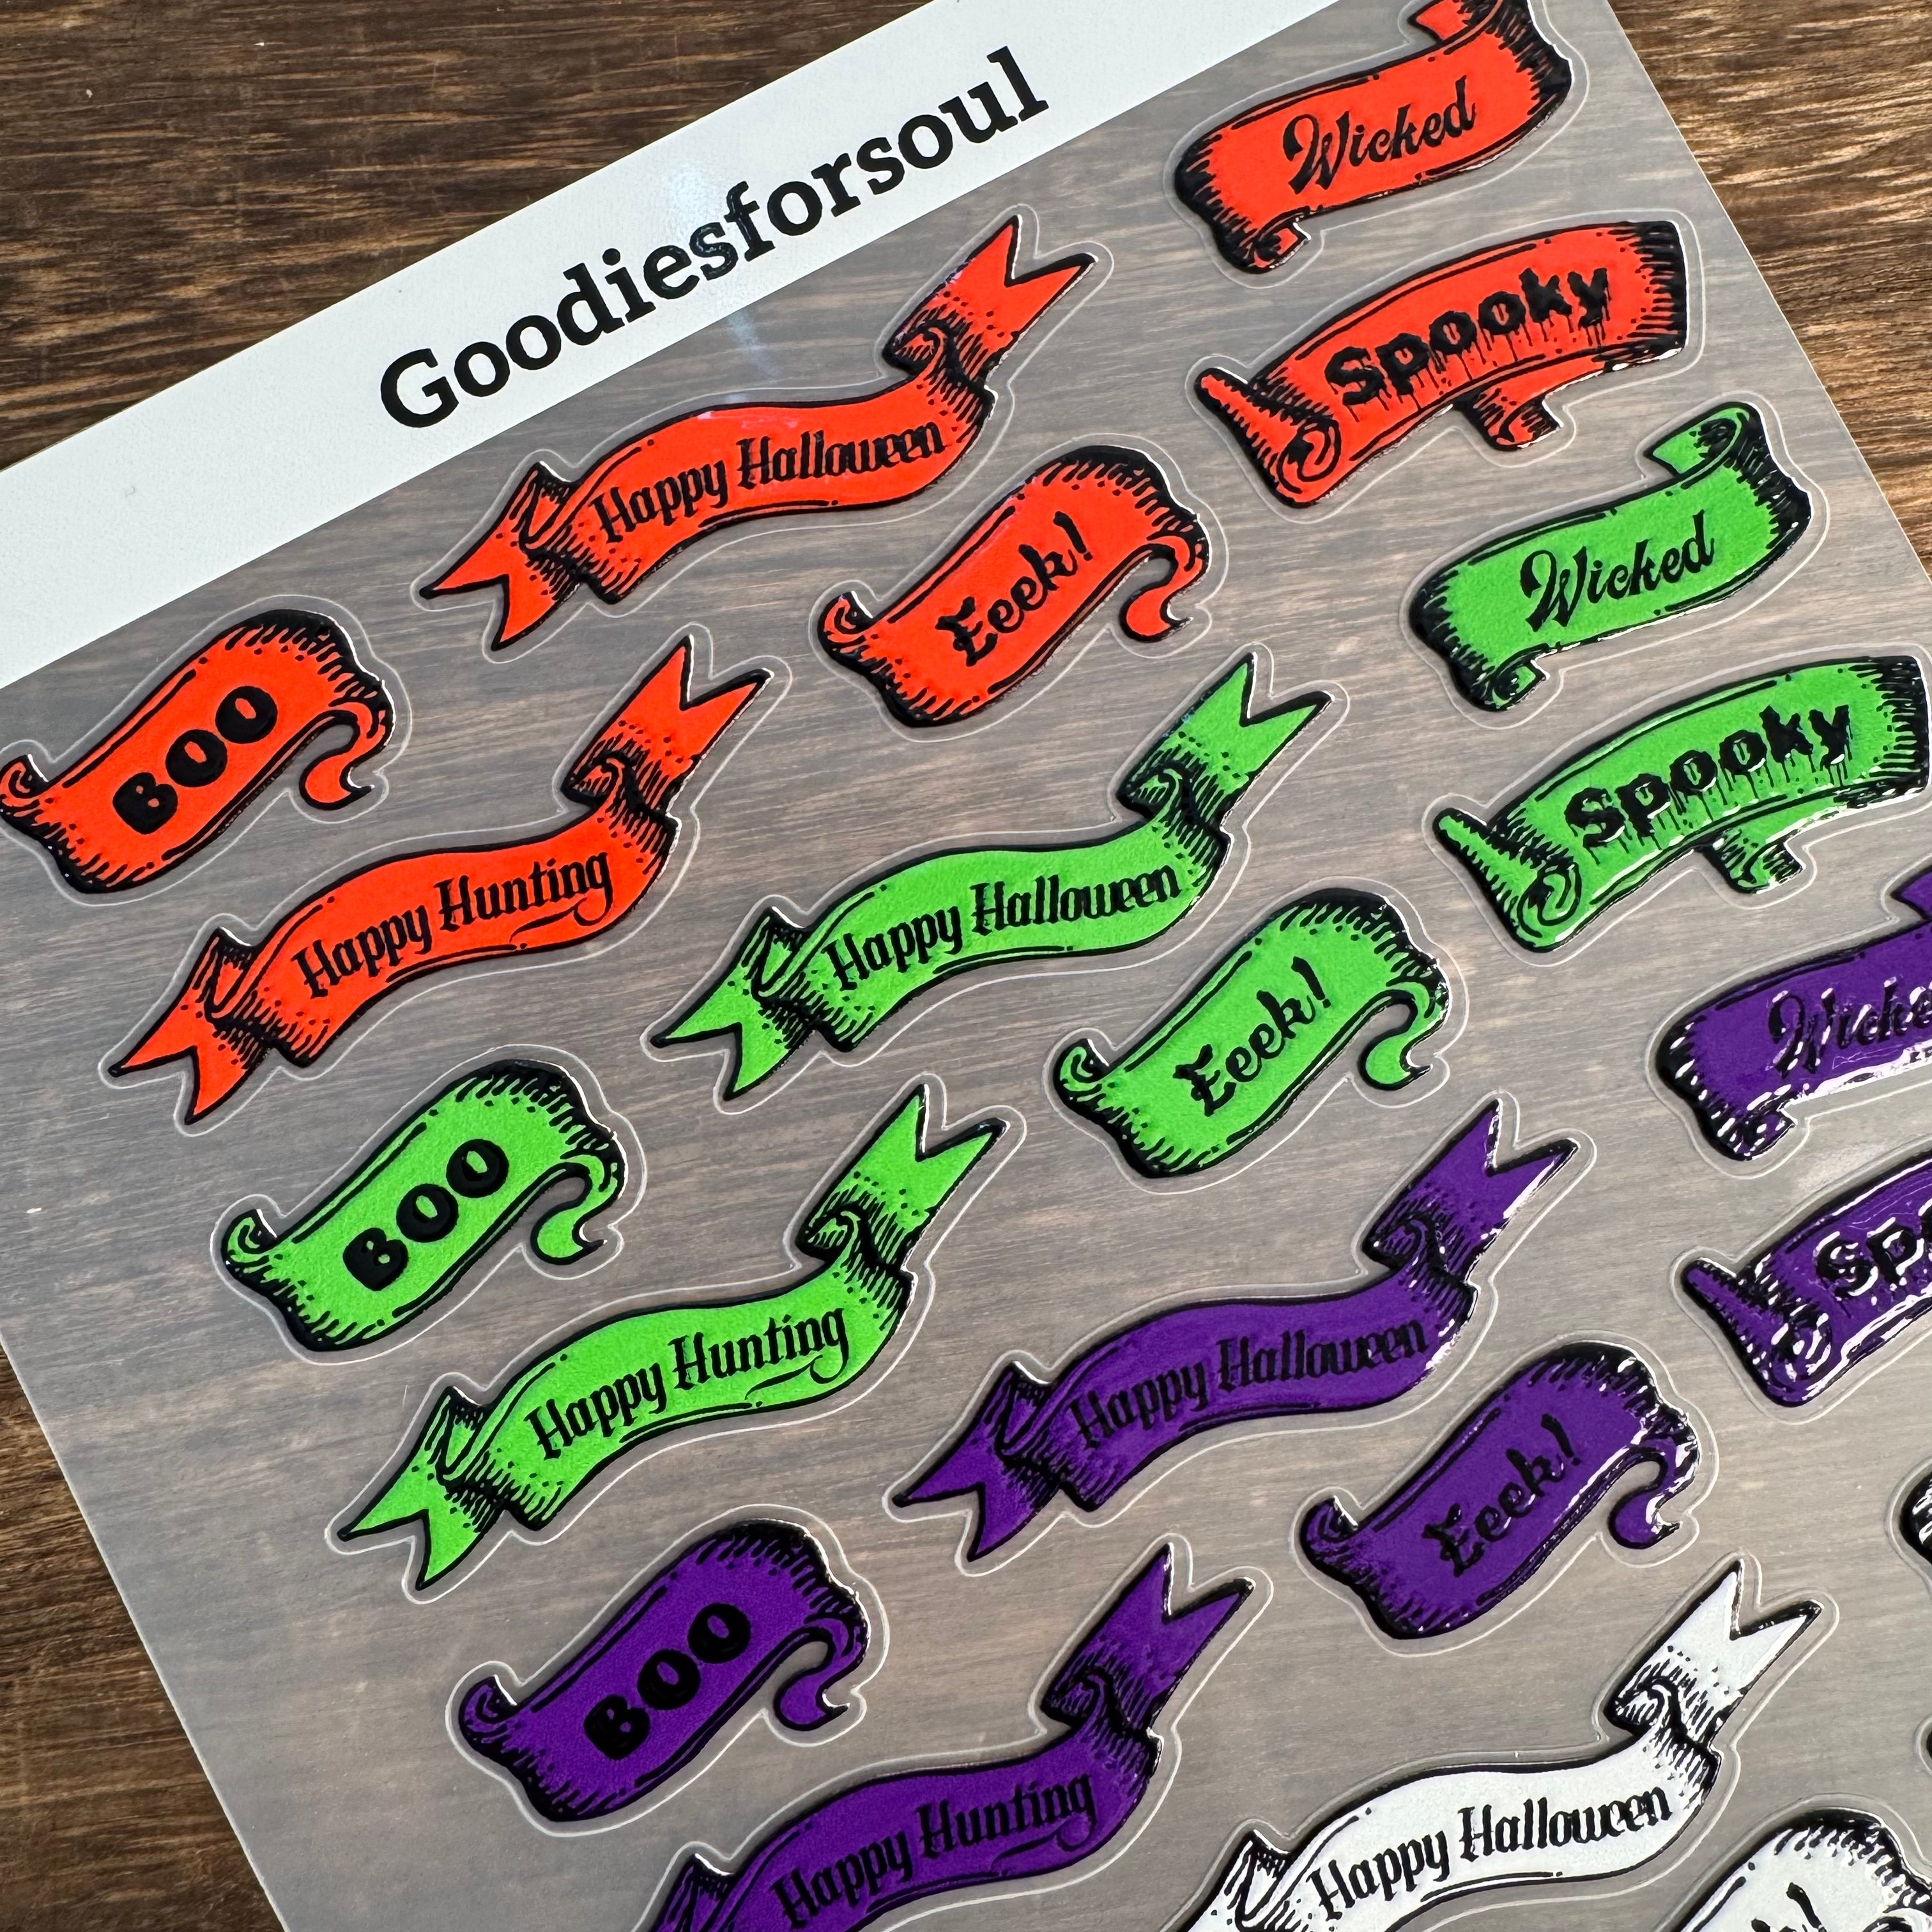 Goodiesforsoul
Wicked
Happy Halloween
Spooky
BOO
Eeek!
Happy Hunting
Wicked
Happy Halloween
Spooky
BOO
Eeek!
Happy Hunting
Wicke
Happy Halloween
Spo
BOO
Eeek!
Happy Hunting
Happy Halloween